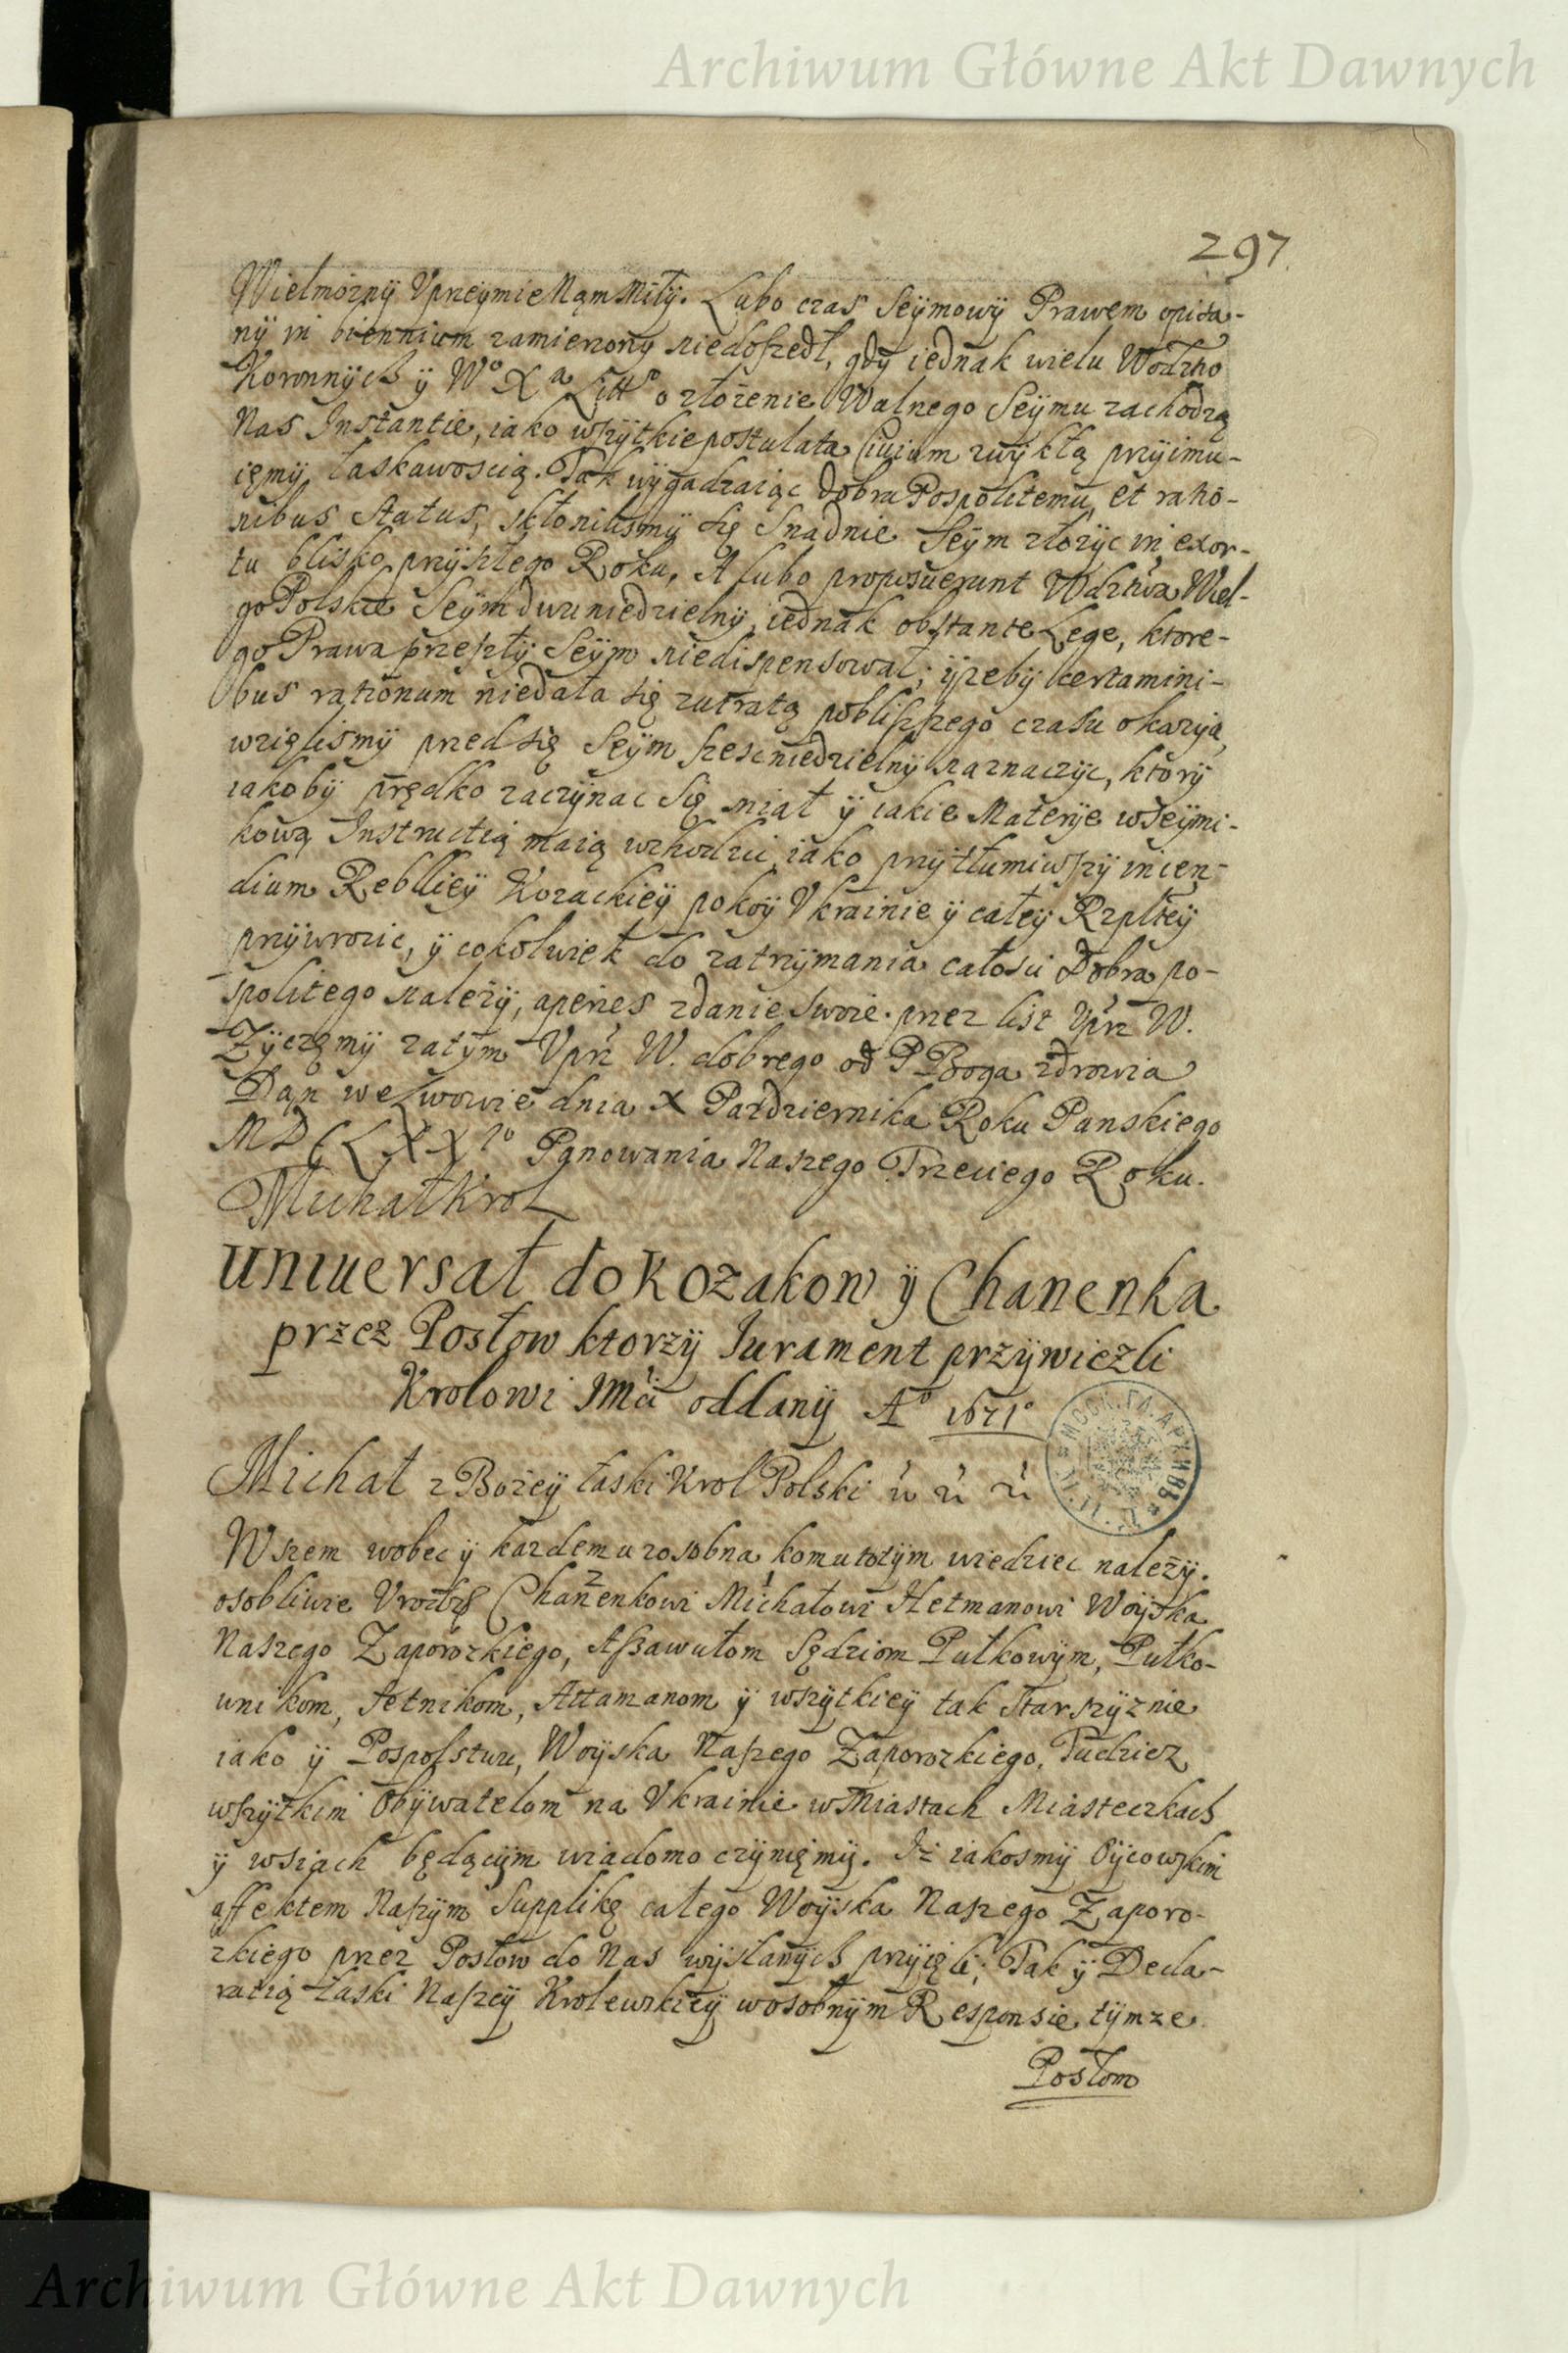 Archiwum Główne Akt Dawnych
297.
Wielmożnÿ Vprzeÿmie Nąm Miłÿ. Lubo czas Seÿmowÿ Prawem opisa-
nÿ in biennium zamierzonÿ niedoszedł, gdÿ iednak wielu Wodztw
Koronnÿch ÿ Wº Xª Littº o złożenie Walnego Seÿmu zachodzą
Nas Instantie, iako wszÿtkie postulata Ciuium zwÿkłą przÿimu-
ięmÿ łaskawoscią. Tak wÿgadzaiąc dobru Pospolitemu, et ratio-
nibus Status, skłonilismÿ się snadnie Seÿm złożÿc in exor-
tu blisko przÿszłego Roku, A lubo proposuerunt Wdztwa Wiel-
go Polskie Seÿm dwuniedzielnÿ, iednak obstante Lege, ktore-
go Prawa przeszłÿ Seÿm niedispensował; ÿżebÿ certamini-
bus rationum niedała się zutratą pobliższego czasu okazÿa,
wzięlismÿ przed się Seÿm szescniedzielnÿ naznaczÿc, ktorÿ
iakobÿ prędko zaczÿnac się miał ÿ iakie Materÿe wseÿmi-
kową Instructią maią wchodzic, iako przÿtłumiwszÿ incen-
dium Rebelliey Kozackieÿ pokoÿ Vkrainie ÿ całeÿ Rzplteÿ
przÿwrocic, ÿ cokolwiek do zatrzÿmania całosci Dobra po-
spolitego należÿ, aperies zdanie swoie przez list Vprz W.
Zÿczęmÿ zatÿm Vprz W. dobrego od P Boga zdrowia
Dąn we Lwowie dnia X Pazdziernika Roku Panskiego
MDCLXXIº Pąnowania Naszego Trzeciego Roku.
Michał Krol
Uniuersał do Kozakow ÿ Chanenka
przez Posłow ktorzÿ Iurament przÿwiezli
Krolowi JMci oddanÿ Aº 1671º
МОСК. ГЛ. АРХИВЪ
Michał z Bożeÿ łaski Krol Polski
Wszem wobec ÿ kazdemu zosobna, komu otÿm wiedziec należÿ.
osobliwie Vrodz Chanenkowi Michałowi Hetmanowi Woÿska
Naszego Zaporozkiego, Assawułom Sędziom Pułkowÿm, Pułko-
wnikom, Setnikom, Attamanom ÿ wszÿtkieÿ tak Starszÿznie
iako ÿ Pospolstwu, Woÿska Naszego Zaporozkiego. Tudziez
wszÿtkim Obÿwatelom na Vkrainie w Miastach Miasteczkach
ÿ wsiach będącÿm wiadomo czÿnięmÿ. Iż iakosmÿ Oÿcowskim
affektem Naszÿm Supplikę całego Woÿska Naszego Zaporo-
zkiego przez Posłow do Nas wÿsłanÿch przÿięli; Tak ÿ Decla-
ratią łaski Naszeÿ Krolewskieÿ wosobnÿm Responsie tÿmze
Posłom
Archiwum Główne Akt Dawnych